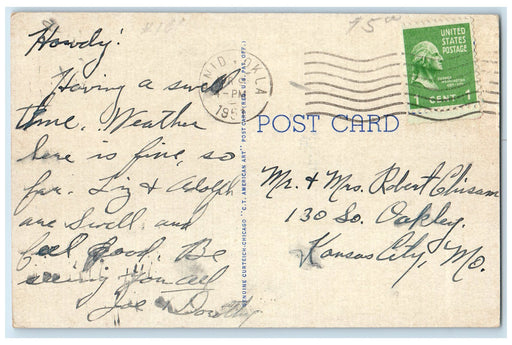 Howdy!
Having a swell
time. Weather
here is fine, so
far. Liz & Adolph
are swell and
feel good. Be
seeing you all
Joe & Dorothy
ENID OKLA
PM
POST CARD
GENUINE CURTEICH-CHICAGO "C.T. AMERICAN ART" POST CARD (REG. U.S. PAT. OFF.)
UNITED
STATES
POSTAGE
1 CENT 1
Mr. & Mrs. Robert Chisam
130 So. Oakley.
Kansas City, Mo.